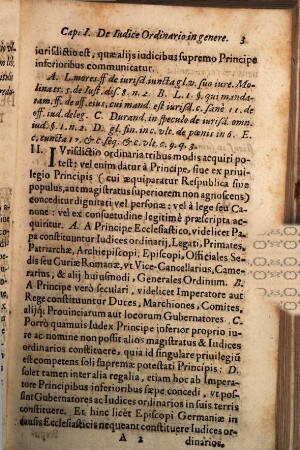 Cap: I. De Iudice Ordinario in genere. 3
iurisdictio est, quæ alijs iudicibus supremo Principe
inferioribus communicatur.
A. L. mores. ff. de iurisd. iuncta gl. v. suo iure. Mo-
lina to. 5. de Iust. dis. 8. n. 2. B. L. 1. §. qui manda-
tam. ff. de off. eius, cui mand. est iurisd. c. sanè 11. de
off. iud. deleg. C. Durand. in speculo de iurisd. omn.
iud. §. 1. n. 2. D. gl. fin. in c. vlt. de pœnis in 6. E.
c. cuncta 17. & c. seq. & c. vlt. c. 9. q. 3.
II. IVrisdictio ordinaria tribus modis acquiri po-
test; vel enim datur à Principe, siue ex priui-
legio Principis (cui æquiparatur Respublica siue
populus, aut magistratus superiorem non agnoscens)
conceditur dignitati vel personæ: vel à lege seu Ca-
none: vel ex consuetudine legitimè præscripta ac-
quiritur. A. A Principe Ecclesiastico, videlicet Pa-
pa constituuntur Iudices ordinarij, Legati, Primates,
Patriarchæ, Archiepiscopi, Episcopi, Officiales Se-
dis seu Curiæ Romanæ, vt Vice-Cancellarius, Came-
rarius, & alij huiusmodi, Generales Ordinum. B.
A Principe verò seculari, videlicet Imperatore aut
Rege constituuntur Duces, Marchiones, Comites,
alijq; Prouinciarum aut locorum Gubernatores. C.
Porrò quamuis Iudex Principe inferior proprio iu-
re ac nomine non possit alios magistratus & Iudices
ordinarios constituere, quia id singulare priuilegiũ
est competens soli supremæ potestati Principis: D.
solet tamen inter alia regalia, etiam hoc ab Impera-
tore Principibus inferioribus sæpe concedi, vt pos-
sint Gubernatores ac Iudices ordinarios in suis terris
constituere. Et hinc licèt Episcopi Germaniæ in
causis Ecclesiasticis nequeant constituere Iudices or-
A 2 dinarios,